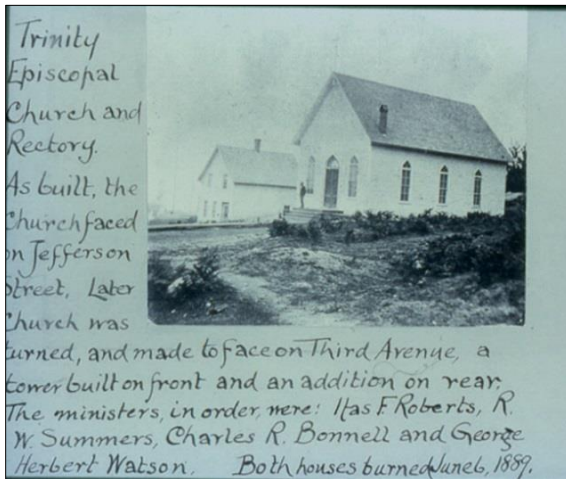 Trinity
Episcopal
Church and
Rectory.
As built, the
Church faced
on Jefferson
Street, Later
Church was
turned, and made to face on Third Avenue, a
tower built on front and an addition on rear.
The ministers, in order, were: F. Roberts, R.
W. Summers, Charles R. Bonnell and George
Herbert Watson. Both houses burned June 6, 1889.